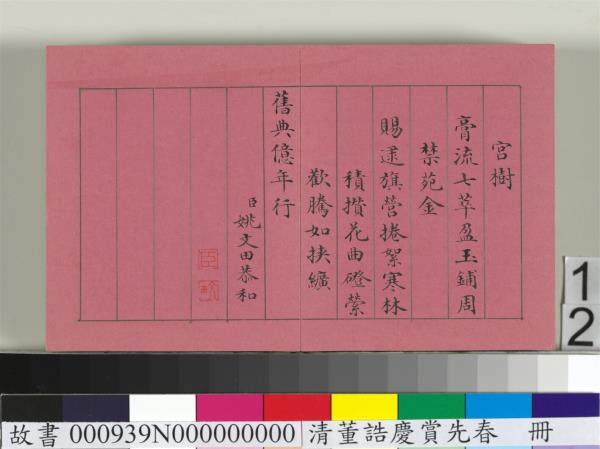 宮樹
膏流七萃盈玉鋪周
禁苑金
賜逮旗營捲絮寒林
積攢花曲磴縈
歡騰如挾纊
舊典億年行
臣姚文田恭和
12
故書 000939N000000000 清董誥慶賞先春 冊